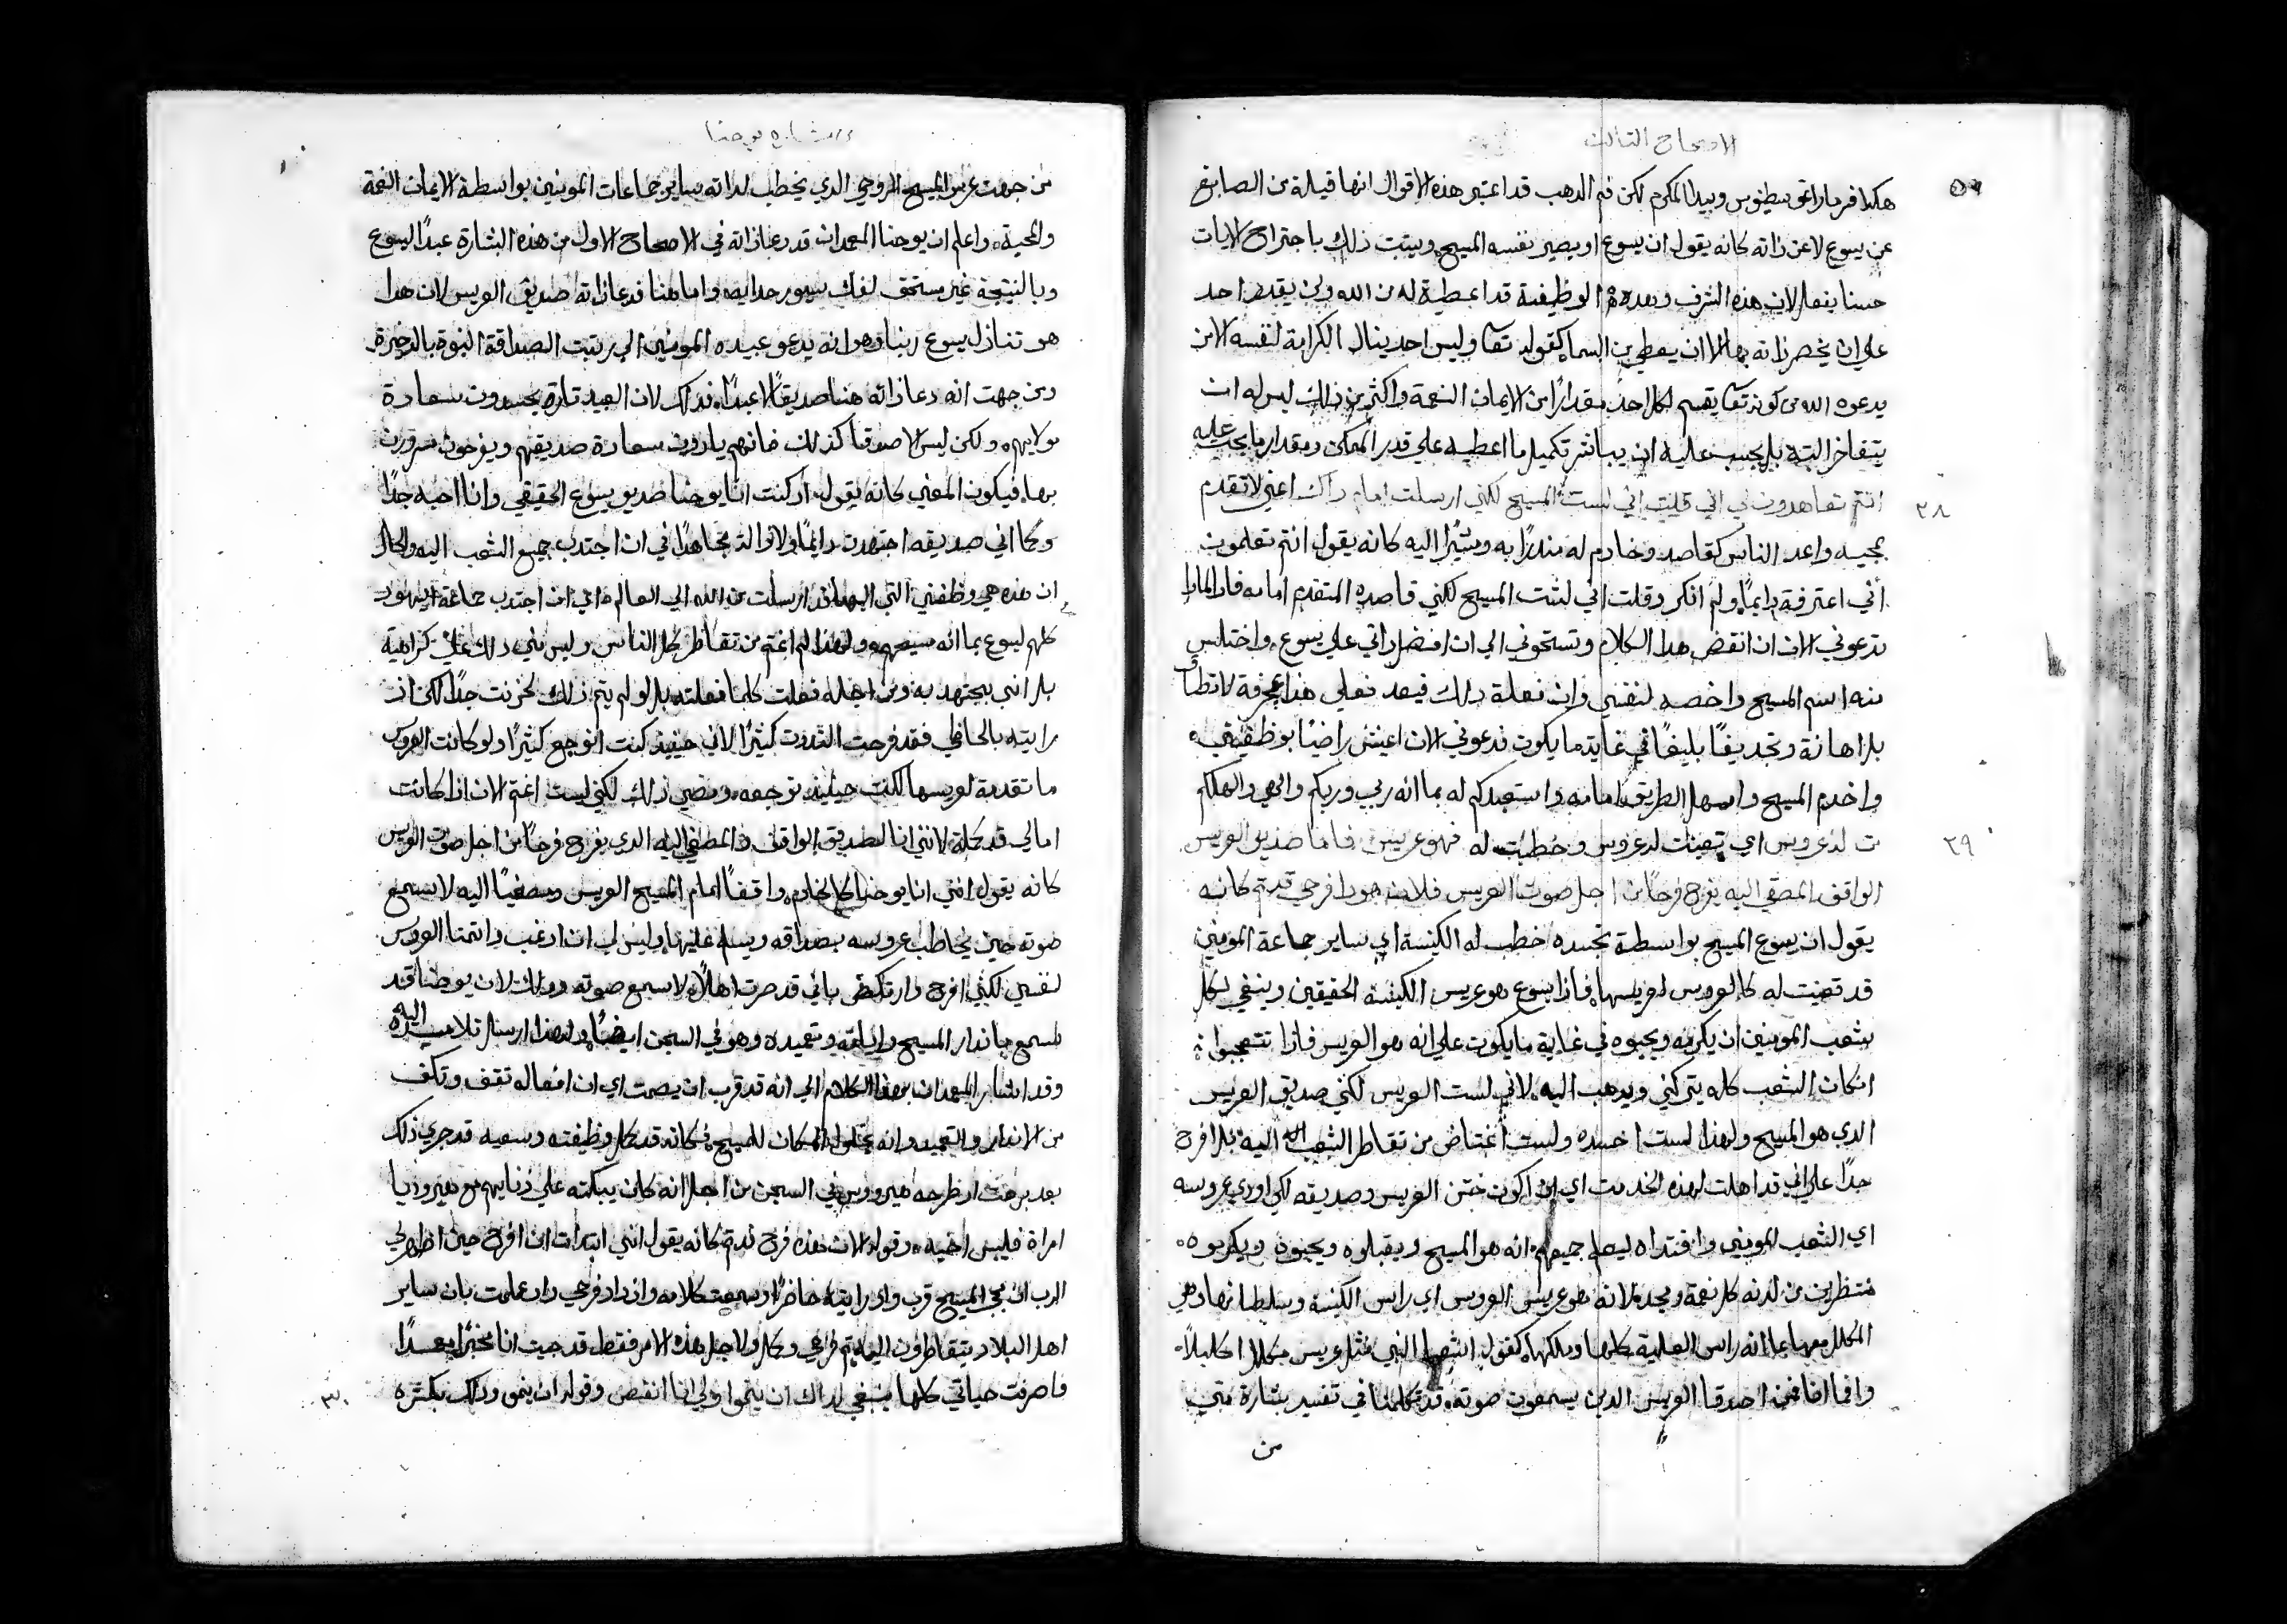 الاصحاح التالت
هكدا فرمارا اغوسطينوس وبيدا المكرم لكن فم الدهب قد اعتبر هذه الاقوال انها قيلة من الصابغ
عن يسوع لا عن ذاته كانه يقول ان يسوع او يصير نفسه المسيح ويتبت ذلك باجتراح الايات
حسنا يفعل لان هذه الشرف وهده الوظيفة قد اعطية له من الله ولن يقدر احد
علي ان يخصر ذاته بها الا ان يعطي من السما كقوله تعا وليس احد ينال الكرامة لنفسه الا من
يدعوه الله من كونه تعا يقسم لكل احد مقدارًا من الايمان النعمة واكثر من ذلك ليس له ان
يتفاخر البتة بل يجب عليه ان يباشر تكميل ما اعطيه علي قدر الممكن ومقدار ما يجب عليه
٢٨
انتم تشاهدون لي اني قلت اني لست المسيح لكني ارسلت امام داك اعني لاتقدم
مجيه واعد الناس كقاصد وخادم له مندرًا به ومشيرًا اليه كانه يقول انتم تعلمون
أني اعترفة دايمًا ولم انكر وقلت اني لست المسيح لكني قاصده المتقدم امامه فاد المادا
تدعوني الان ان انقض هدا الكلام وتستحوني الي ان افضل داتي علي يسوع واختلس
منه اسم المسيح واخصه لنفسي وان فعلة دلك فيعد فعلي هدا عجرفة لا تطاق
بل اهانة وتجديفًا بليغًا في غاية ما يكون فدعوني الان اعيش راضيًا بوظيفتي
واخدم المسيح واسهل الطريق امامه واستعبدكم له بما انه ربي وربكم والهي والهكم
٢٩
ت له عروس اي تعينت له عروس وخطبت له فهو عريس فاما صديق العريس
الواقف المصغي اليه يفرح فرحًا من اجل صوت العريس فلان هودا فرحي قد تم كانه
يقول ان يسوع المسيح بواسطة تجسده خطب له الكنيسة اي ساير جماعة المومنين
قد تعينت له كالعروس لعريسها فاذا يسوع هو عريس الكنيسة الحقيقين وينبغي لكل
شعب المومنين ان يكرمه ويحبوه في غاية ما يكون علي انه هو العريس فاذا تتعجبوا
انكان الشعب كله يتركني ويدهب اليه لاني لست العريس لكني صديق العريس
الدي هو المسيح ولهذا لست احسده ولست اغتاض من تقاطر الشعب اليه بل افرح
جدًا علي اني قد اهلت لهذه الخدمة اي ان اكون ختن العريس وصديقه لكي اوري عروسه
اي الشعب المومنين واقتداه ليعلم جميعهم انه هو المسيح ويقبلوه ويحبوه ويكرموه
منتظرين من لدنه كل نعمة ومجد لانه هو عريس العروس اي راس الكنيسة وسلطانها دهي
المكلل معها بما انه راس العلية كلها وملكها كقول اشعيا النبي مثل عريس مكلل اكليلاً
وانما انا فمن اصدقا العريس الدين يسمعون صوته وقد تكلمنا في تفسير بشارة متي
من
بشارة يوحنا
من جهت عرس المسيح الروحي الدي يخطب لداته ساير جماعات المومنين بواسطة الايمان النعمة
والمحبة واعلم ان يوحنا المعمدان قد دعا ذاته في الاصحاح الاول من هذه البشارة عبدًا ليسوع
وبالنتيجة غير مستحق لفك سيور حدايه واما هنا فدعا ذاته صديق العريس لان هدا
هو تنازل يسوع ربنا وهو انه يدعو عبيده المومنين الي رتبت الصداقة البنوة بالدخيرة
ومن جهت انه دعا ذاته هنا صديقًا لا عبدًا فداك لان العبيد تارة يحسدون سعادة
مولايهم ولكن ليس الاصدقا كذلك فانهم يادون سعادة صديقهم ويفرحون مسرورين
بها فيكون المعني كانه يقول ادكنت انا يوحنا صديق يسوع الحقيقي وانا احبه جدًا
وكما اني صديقه اجتهدت دايمًا ولا ازالت مجاهدًا في ان اجتدب جميع الشعب اليه والحال
ان هذه هي وظفتي التي الهيا قد ارسلت من الله الي العالم اي ان اجتدب جماعة اليهود
كلهم ليسوع بما انه مسيحهم ولهذا لم اغتم من تقاطر كل الناس وليس شي دلك علي كراهية
بل انني بيجتهد به ومن اجله فعلت كلما فعلته بل لو لم يتم ذلك لحزنت جدًا لكن اذ
رايته بالحاظي فقد فرحت التددت كثيرًا لاني حينيذ كنت اتوجع كثيرًا ولو كانت العروس
ما تقدمة لعريسها لكنت حينيذ توجعه ومضي ذلك لكني لست اغتم الان اذا كانت
امالي قد كملة لانني انا الصديق الواقف والمصغي اليه الدي يفرح فرحًا من اجل صوت العريس
كانه يقول انني انا يوحنا كالخادم واقفًا امام المسيح العريس ومصغيًا اليه لاسمع
صوته حين يخاطب عروسه بصداقه ويسلم عليها وليس لي ان ارغب واتمنا العروس
لنفسي لكني افرح وارتكض باني قد صرت اهلاً لاسمع صوته ودلك لان يوحنا قد
سمع باندار المسيح واياته وتعميده وهو في السجن ايضًا ولهدا ارسل تلاميده اليه
وقد اشار المعمدان بهدا الكلام الي انه قد قرب ان يصمت اي ان افعاله تقف وتكف
من الاندار والتعميد وانه يخلو المكان للمسيح فكانه قد كمل وظيفته وسعيه قد جري ذلك
بعد برهت اد طرحه هيرودس في السجن من اجل انه كان يبكته علي زنايهم مع هيروديا
امراة فليبس اخيه وقوله الان هذه فرحي قد تم كانه يقول انني ابتدات ان افرح حين اظهر لي
الرب ان مجي المسيح قرب واد رايته حاضرًا وسمعت كلامه وازداد فرحي واد علمت بان ساير
اهل البلاد يتقاطرون اليه يتم فرحي وكل ولاجل هذه الامر فقط قد جيت انا مخبرًا معمدًا
٣٠
فاصرفت حياتي كلها ينبغي لداك ان ينموا ولي انا انقص وقوله ان ينمو ودلك بكثره